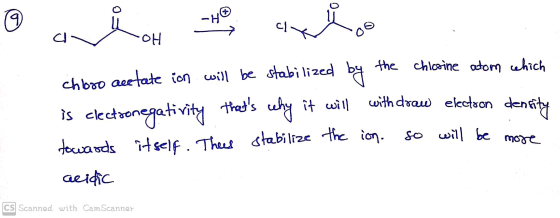 9
Cl
O
OH
-H⊕
Cl
O
O⊖
chloro acetate ion will be stabilized by the chlorine atom which
is electronegativity that's why it will withdraw electron density
towards itself. Thus stabilize the ion. so will be more
acidic
CS Scanned with CamScanner